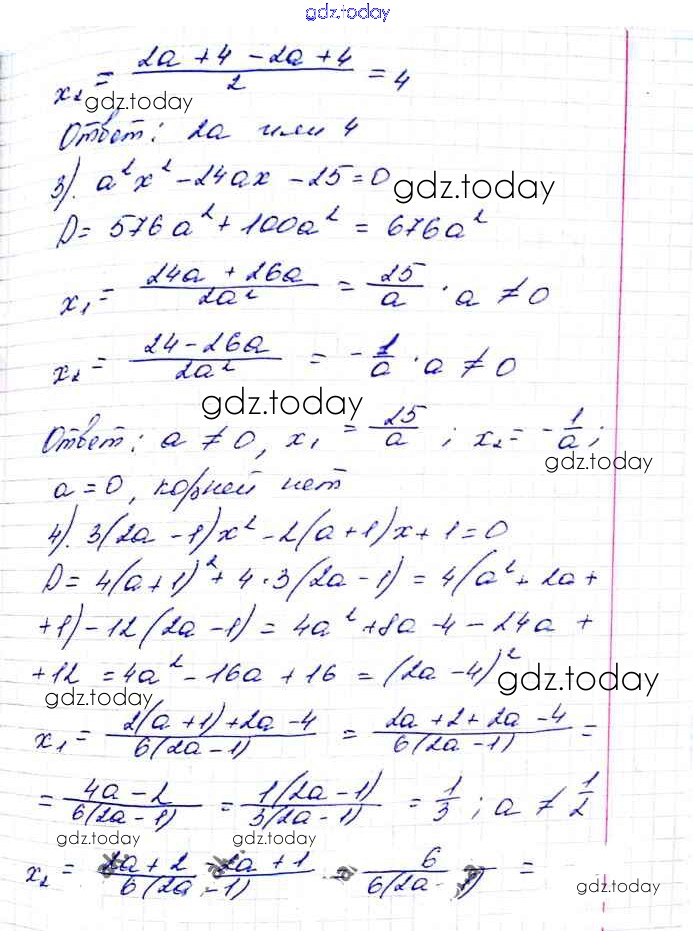 gdz.today
x₂ = (2a + 4 - 2a + 4)/2 = 4
gdz.today
Ответ: 2a или 4
3). a²x² - 24ax - 25 = 0
gdz.today
D = 576a² + 100a² = 676a²
x₁ = (24a + 26a)/(2a²) = 25/a · a ≠ 0
x₂ = (24 - 26a)/(2a²) = -1/a · a ≠ 0
gdz.today
Ответ: a ≠ 0, x₁ = 25/a ; x₂ = -1/a ;
gdz.today
a = 0, корней нет
4). 3(2a - 1)x² - 2(a + 1)x + 1 = 0
D = 4(a + 1)² + 4 · 3(2a - 1) = 4(a² + 2a +
+ 1) - 12(2a - 1) = 4a² + 8a - 4 - 24a +
+ 12 = 4a² - 16a + 16 = (2a - 4)²
gdz.today
gdz.today
x₁ = (2(a + 1) + 2a - 4)/(6(2a - 1)) = (2a + 2 + 2a - 4)/(6(2a - 1)) =
= (4a - 2)/(6(2a - 1)) = (1(2a - 1))/(3(2a - 1)) = 1/3 ; a ≠ 1/2
gdz.today
gdz.today
x₂ = (2a + 2 - 2a + 1)/(6(2a - 1)) = 6/(6(2a - 1)) =
gdz.today